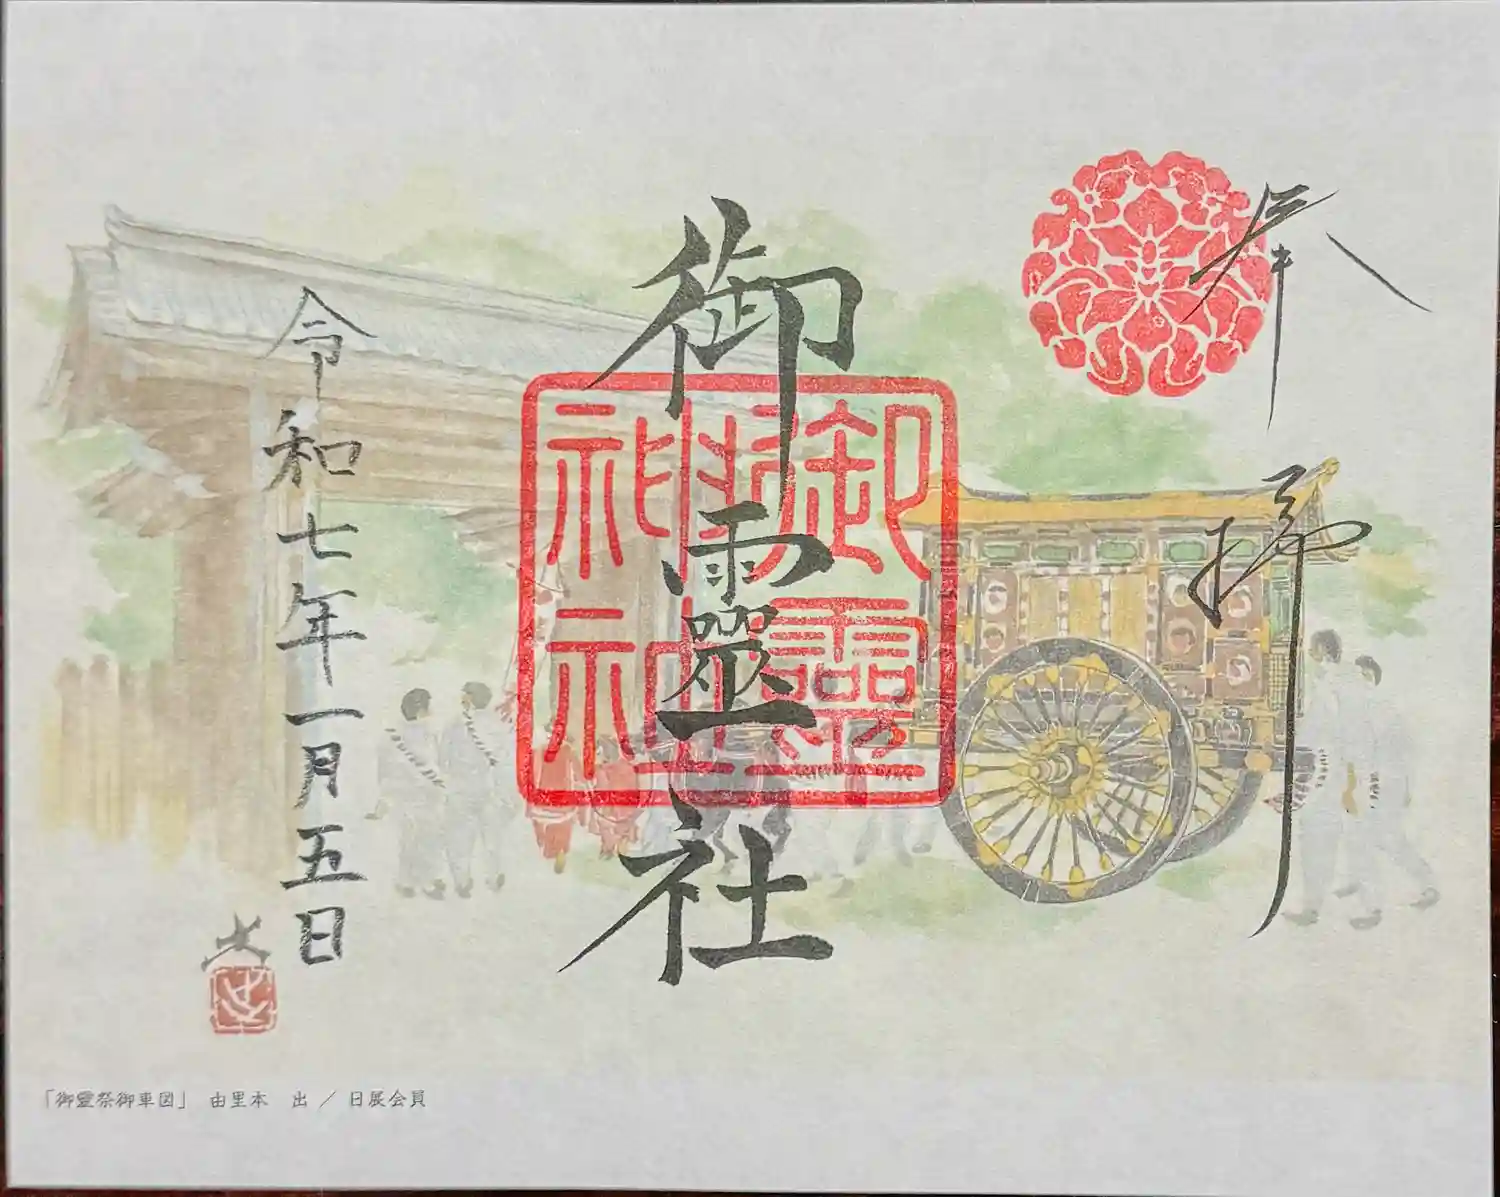 奉拝
御靈社
御靈神社
令和七年一月五日
出
「御霊祭御車図」 由里本 出 / 日展会員